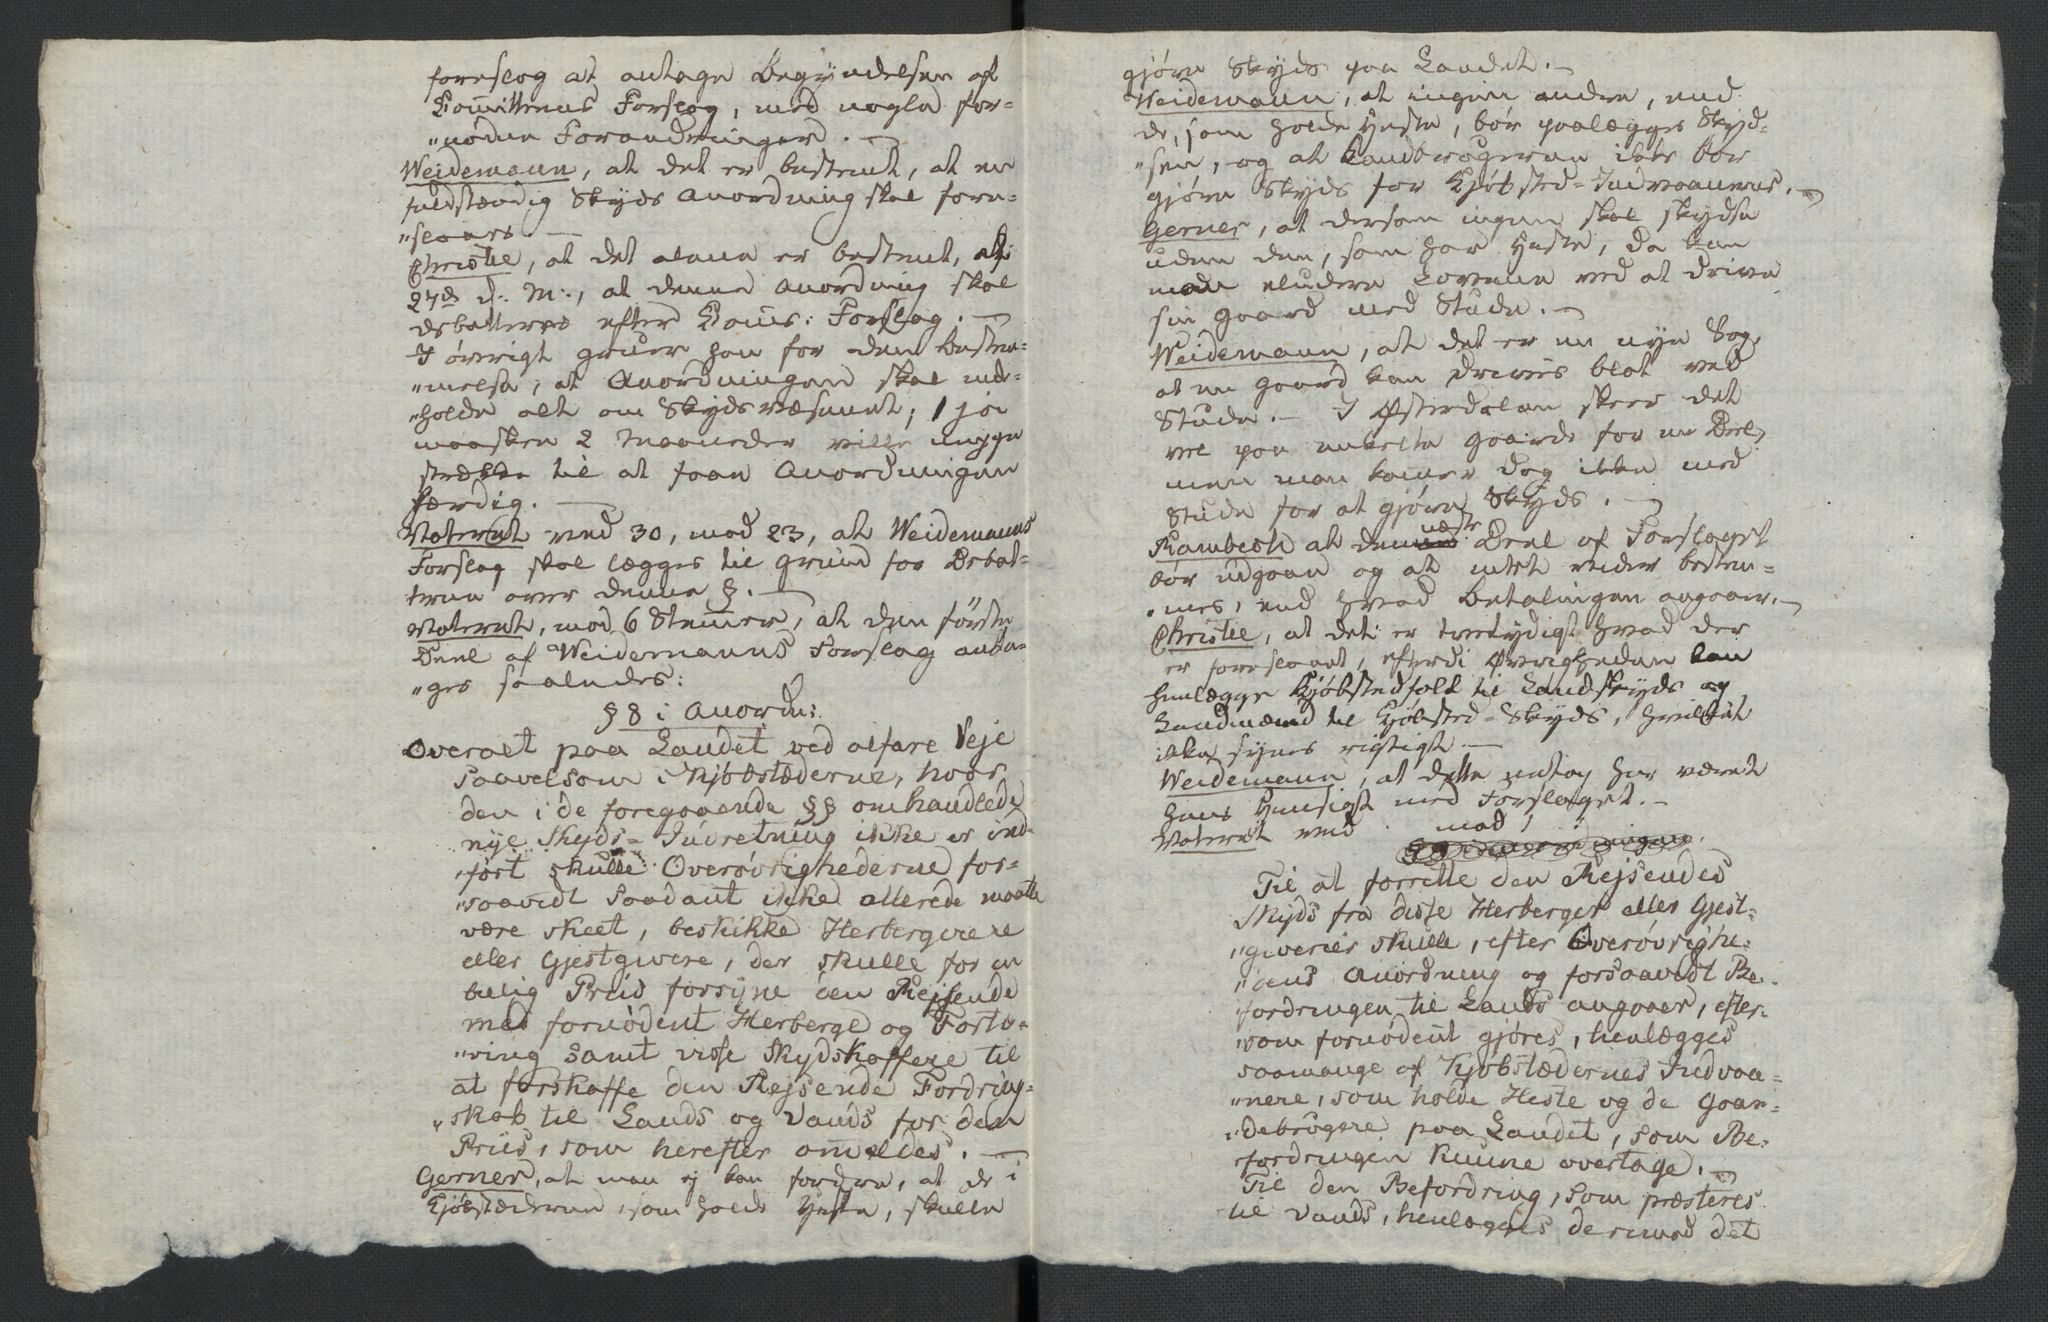 foreslog at antage Begyndelsen af
Com̅itteens Forslag, med nogle for-
"nødne Forandringer. —
Weidemann, at det er bestemt, at en
fuldstændig Skyds Anordning skal fore-
"slaaes. —
Christie, at det alene er bestemt, d:
27de d: M:, at denne Anordning skal
debatteres efter Com̅is: Forslag. —
I øvrigt gruer han for den bestem-
"melse, at Anordningen skal inde-
"holde alt om Skydsvæsenet; 1 ja
maaskee 2 Maaneder ville neppe
strække til at faae Anordningen
færdig. —
Voteret ved 30, mod 23, at Weidemanns
Forslag skal lægges til Grund for Debat-
terne over denne §. —
Voteret, mod 6 Stem̅er, at den første
Deel af Weidemanns Forslag anta-
"ges saaledes:
§ 8 i Anordn:
Overalt paa Landet ved alfare Veje
saavelsom i Kjöbstæderne, hvor
den i de foregaaende §§ omhandlede
nye Skyds-Indretning ikke er ind-
"ført skulle Overøvrighederne for-
"saavidt saadant ikke allerede maatte
være skeet, beskikke Herbergerere
eller Gjestgivere, der skulle for en
billig Priis forsyne den Rejsende
med fornödent Herberge og Fortæ-
"ring samt visse Skydskaffere til
at forskaffe den Rejsende Fordring-
"skab til Lands og Vands for den
Priis, som herefter om̅eldes. —
Gerner, at man ej kan fordre, at de i
Kjøbstæderne, som holde Heste, skulle
gjøre Skyds paa Landet. —
Weidemann, at ingen andre, end
de, som holde Heste, bør paalægges Skyd-
"sen, og at Landbrugerne ikke bør
gjøre Skyds for Kjøbsted-Indvaanerne. —
Gerner, at dersom ingen skal skydse
uden den, som har Heste, da kan
man eludere Lovene ved at drive
sin Gaard med Stude. —
Weidemann, at det er en nye Sag,
at en Gaard kan drives blot ved
Stude. — I Østerdalen skeer det
vel paa enkelte Gaarde for en Deel,
men man kom̅er dog ikke med
Stude for at gjøre Skyds. —
Rambech at den næste Deel af Forslaget
bør udgaae og at intet videre bestem-
"mes, end hvad Betalingen angaaer. —
Christie, at det er tvetydigt hvad der
er foreslaaet, efterdi Øvrigheden kan
henlægge Kjøbstedfolk til Landskyds og
Landmænd til Kjøbsted-Skyds, hvilket
ikke synes rigtigt. —
Weidemann, at dette netop har været
hans Hensigt med Forslaget. —
Voteret ved mod,
Til at forrette den Rejsendes
Skyds fra disse Herberger eller Gjest-
"giverier skulle, efter Overøvrighe-
"dens Anordning og forsaavidt Be-
"fordringen til Lands angaaer, efter-
"som fornødent gjøres, henlægges
saamange af Kjøbstædernes Indvaa-
"nere, som holde Heste og de Gaar-
"debrugere paa Landet, som Be-
"fordringen kunne overtage. —
Til den Befordring, som præsteres
til Vands, henlægges derimod det